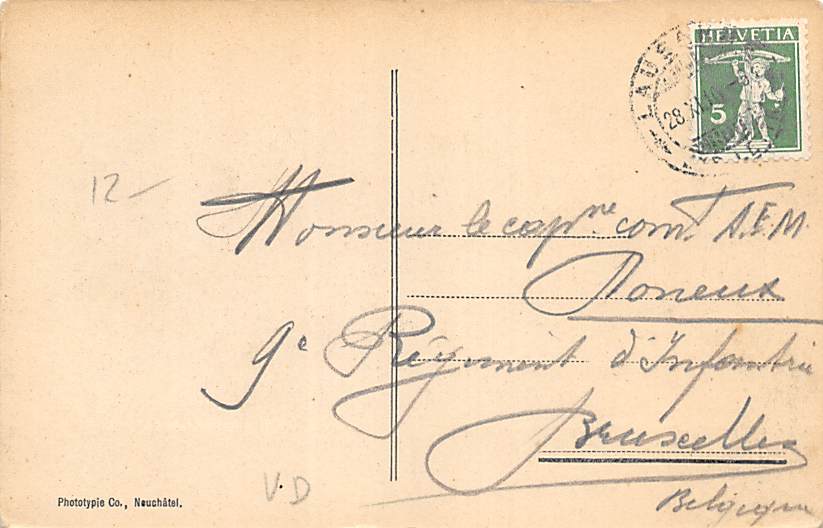 HELVETIA
5
LAUSANNE
12-
Monsieur le cap.ne com.t A.E.M.
Doneux
9e Régiment d'Infantrie
Bruxelles
Belgique
Phototypie Co., Neuchâtel.
V.D